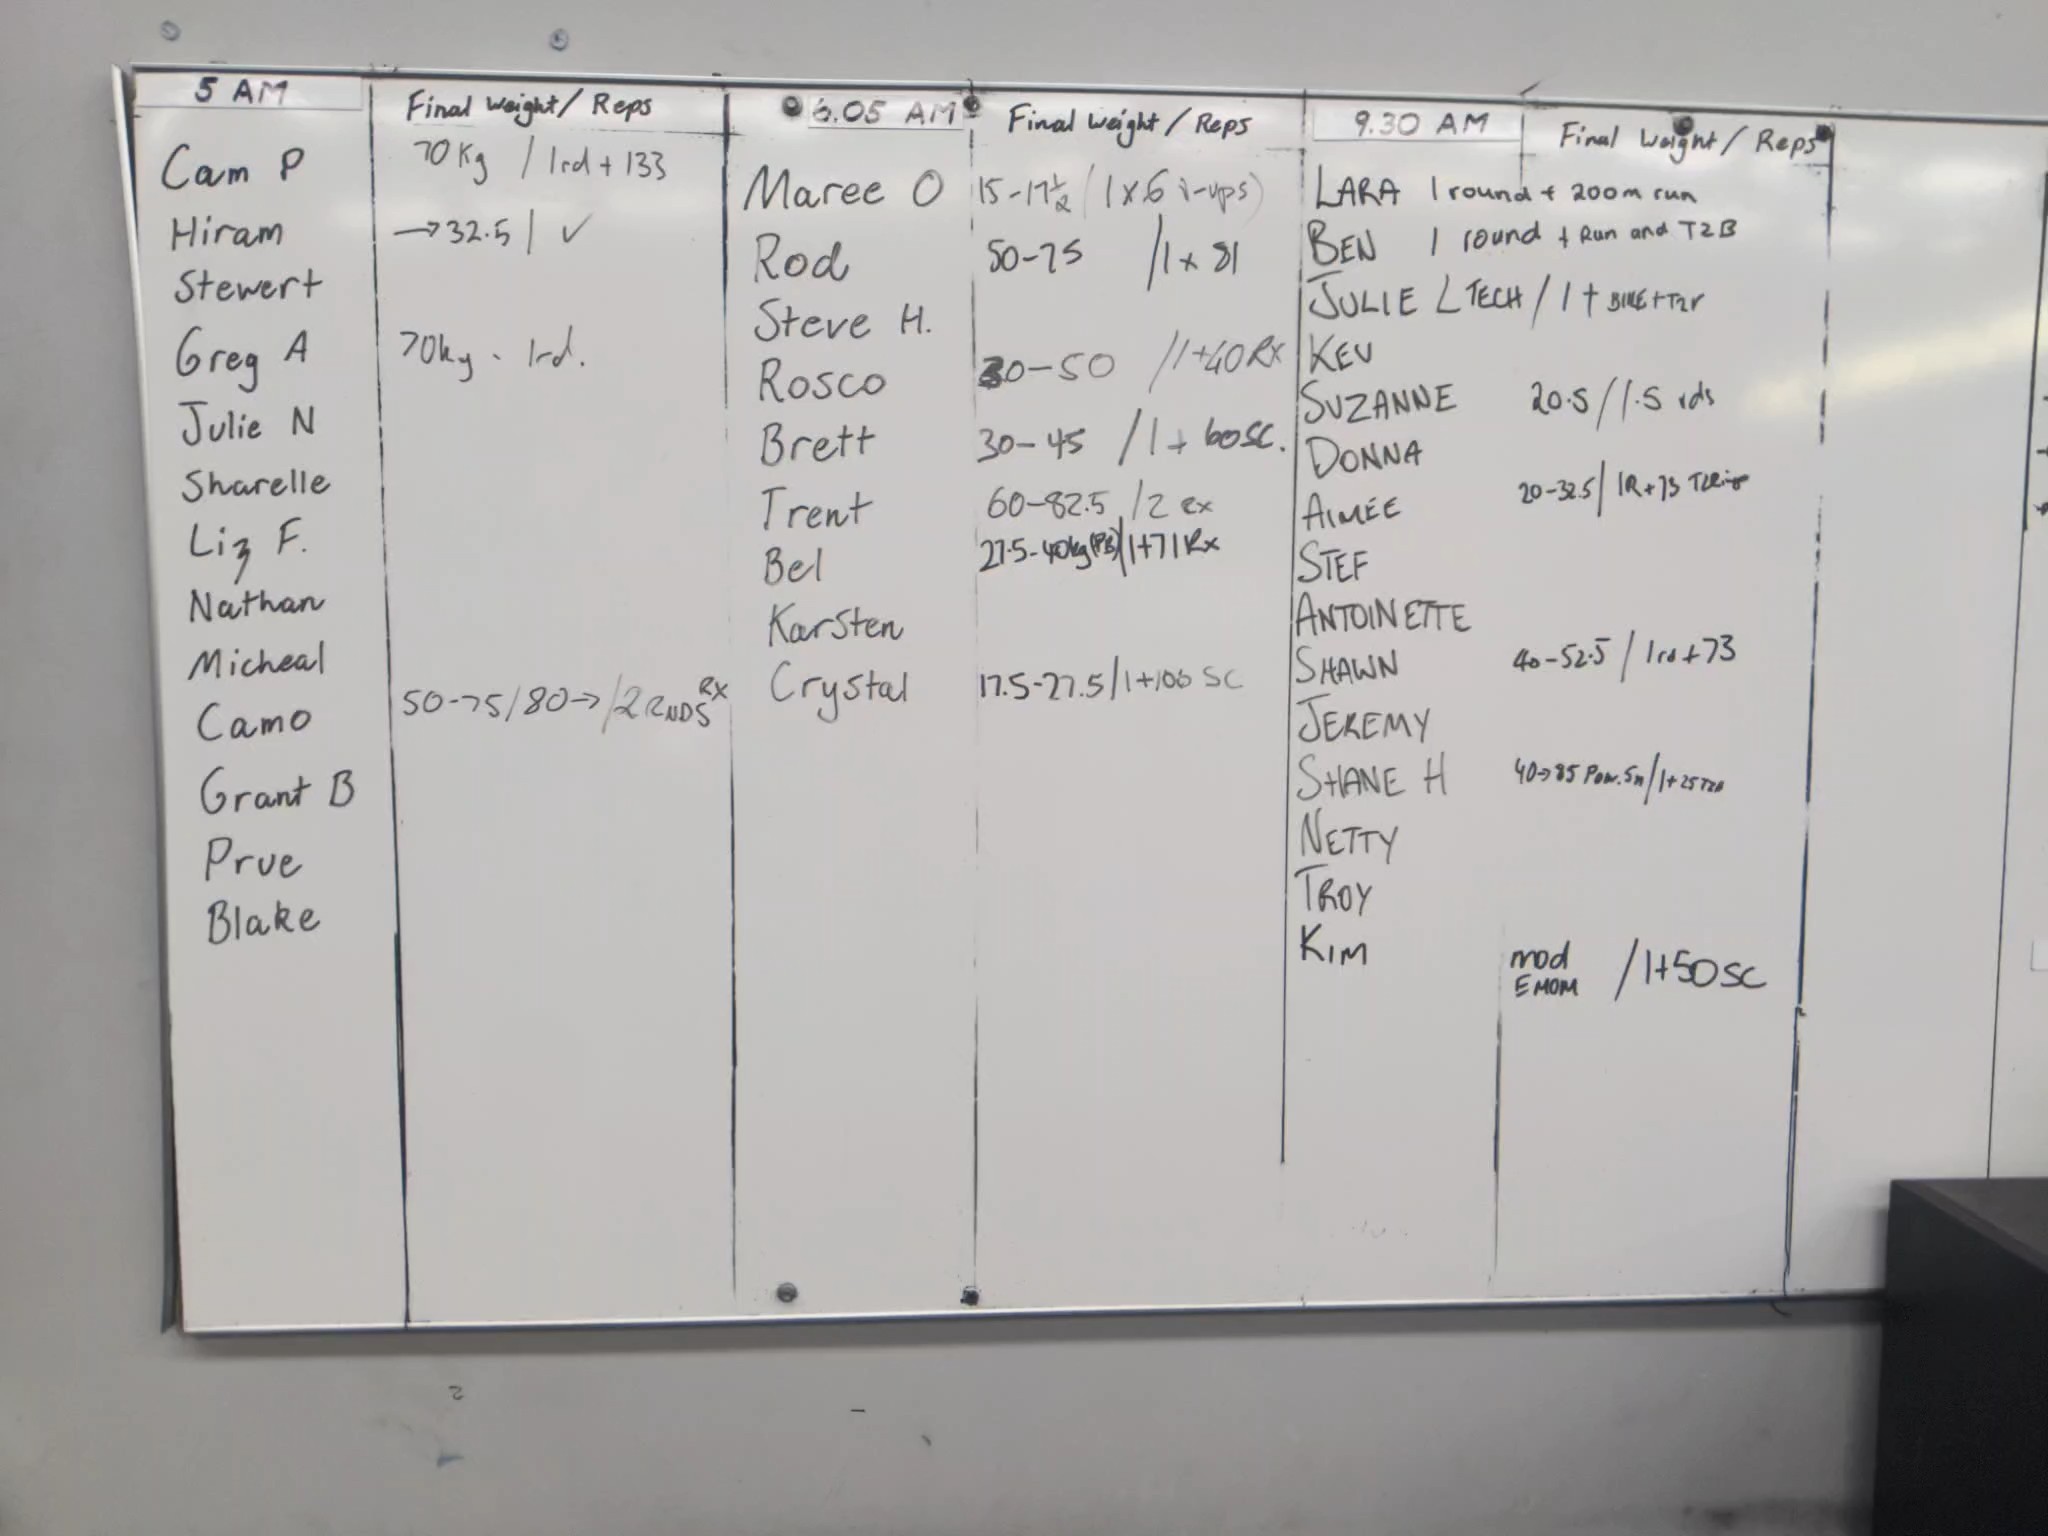 5 AM
Final Weight / Reps
Cam P 70 Kg / 1rd + 133
Hiram → 32.5 / ✓
Stewert
Greg A 70kg - 1rd.
Julie N
Sharelle
Liz F.
Nathan
Micheal
Camo 50-75/80→/2 RNDS RX
Grant B
Prue
Blake
6.05 AM
Final Weight / Reps
Maree O 15-17½ (1x6 i-ups)
Rod 50-75 /1 x 81
Steve H.
Rosco 30-50 /1+40 RX
Brett 30-45 /1 + 60SC.
Trent 60-82.5 /2 RX
Bel 27.5-40kg (PB)/1+71 Rx
Karsten
Crystal 17.5-27.5/1+100 SC
9.30 AM
Final Weight / Reps
LARA 1 round + 200m run
BEN 1 round + Run and T2B
JULIE L TECH / 1 + BIKE + T2r
KEV
SUZANNE 20.5 / 1.5 rds
DONNA
AIMÉE 20-32.5 / 1R + 73
STEF
ANTOINETTE
SHAWN 40-52.5 / 1rd + 73
JEREMY
SHANE H 40→85 Pow. Sn/1+25 T2B
NETTY
TROY
KIM mod /1+50SC
EMOM